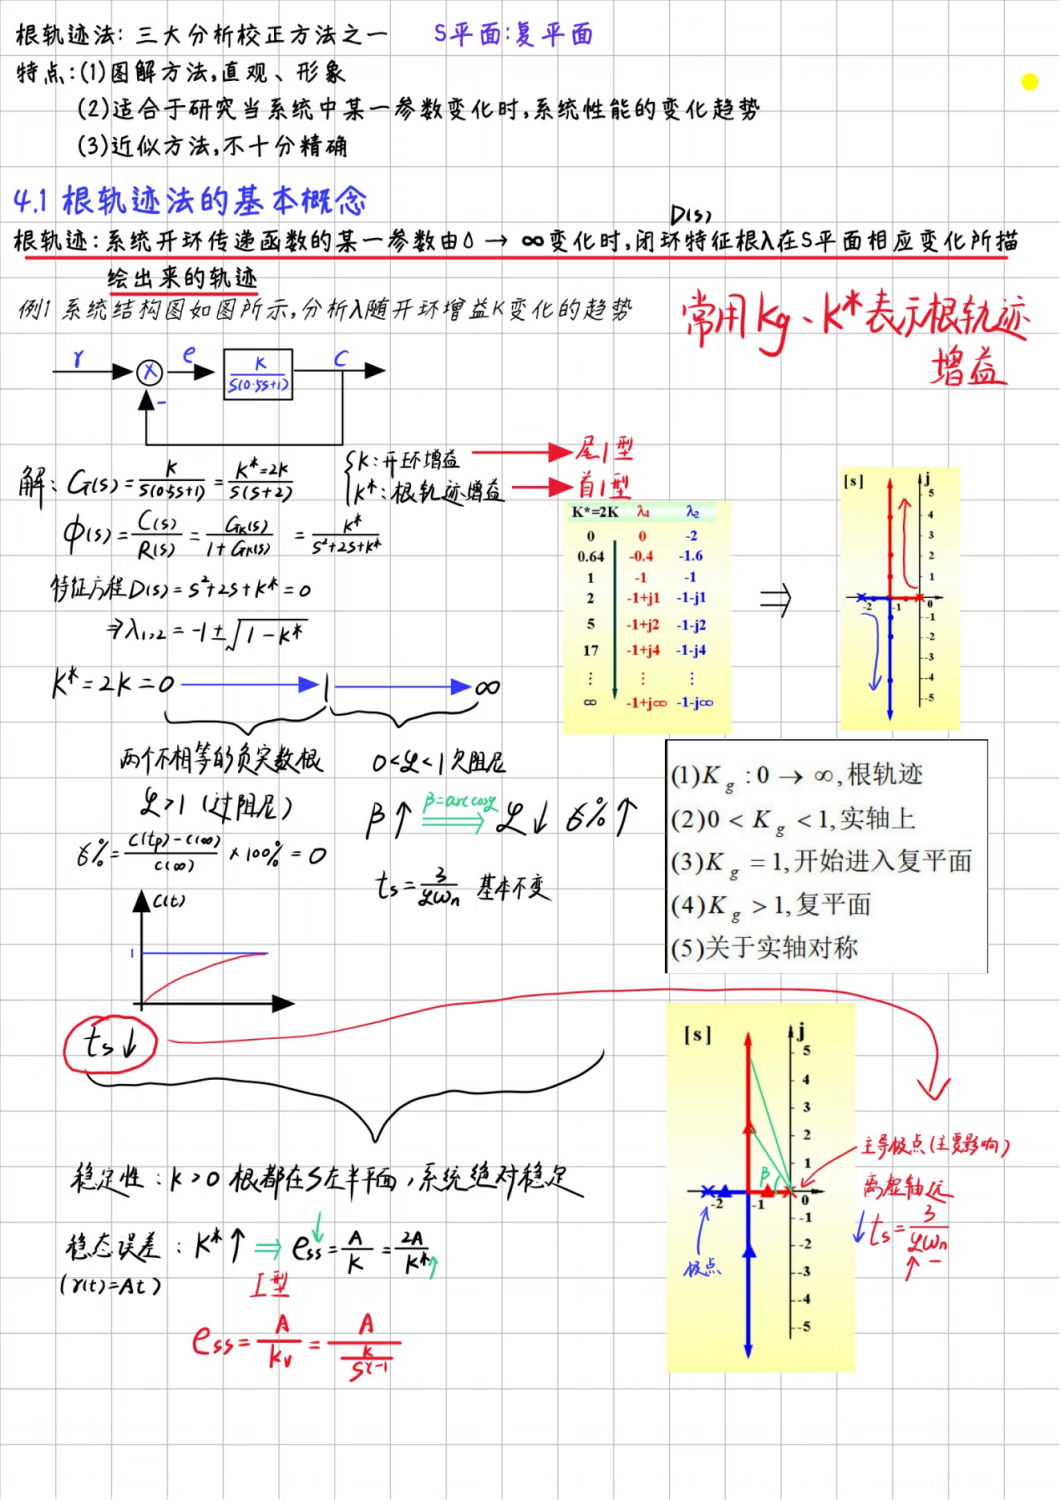 根轨迹法: 三大分析校正方法之一 S平面:复平面
特点:(1)图解方法,直观、形象
(2)适合于研究当系统中某一参数变化时,系统性能的变化趋势
(3)近似方法,不十分精确
4.1 根轨迹法的基本概念
D(s)
根轨迹:系统开环传递函数的某一参数由0 → ∞变化时,闭环特征根λ在S平面相应变化所描
绘出来的轨迹
例1 系统结构图如图所示,分析λ随开环增益K变化的趋势
常用Kg、K*表示根轨迹
增益
r e K/S(0.5S+1) C
-
K:开环增益 尾1型
K*:根轨迹增益 首1型
解: G(s)=K/S(0.5S+1)=K*=2K/S(S+2)
Φ(s)=C(s)/R(s)=GK(s)/1+GK(s)=K*/S²+2S+K*
特征方程D(s)=S²+2S+K*=0
⇒λ1,2=-1±√1-K*
K*=2K λ1 λ2
0 0 -2
0.64 -0.4 -1.6
1 -1 -1
2 -1+j1 -1-j1
5 -1+j2 -1-j2
17 -1+j4 -1-j4
⋮ ⋮ ⋮
∞ -1+j∞ -1-j∞
⇒
[s] j
5
4
3
2
1
-2 -1 0
-1
-2
-3
-4
-5
K*=2K=0 1 ∞
两个不相等的负实数根 0<ξ<1 欠阻尼
ξ>1 (过阻尼)
β↑ β=arccosξ ⇒ ξ↓ σ%↑
σ%=C(tp)-C(∞)/C(∞)×100%=0
ts=3/ξωn 基本不变
(1)Kg:0→∞,根轨迹
(2)0<Kg<1,实轴上
(3)Kg=1,开始进入复平面
(4)Kg>1,复平面
(5)关于实轴对称
C(t)
1
ts↓
[s] j
5
4
3
2
1
β
-2 -1 0
-1
-2
-3
-4
-5
极点
主导极点(主要影响)
离虚轴远
↓ts=3/ξωn
↑-
稳定性: K>0 根都在S左半平面,系统绝对稳定
稳态误差: K*↑ ⇒ ess↓=A/K=2A/K*↑
(r(t)=At) I型
ess=A/Kv=A/K/S^(r-1)